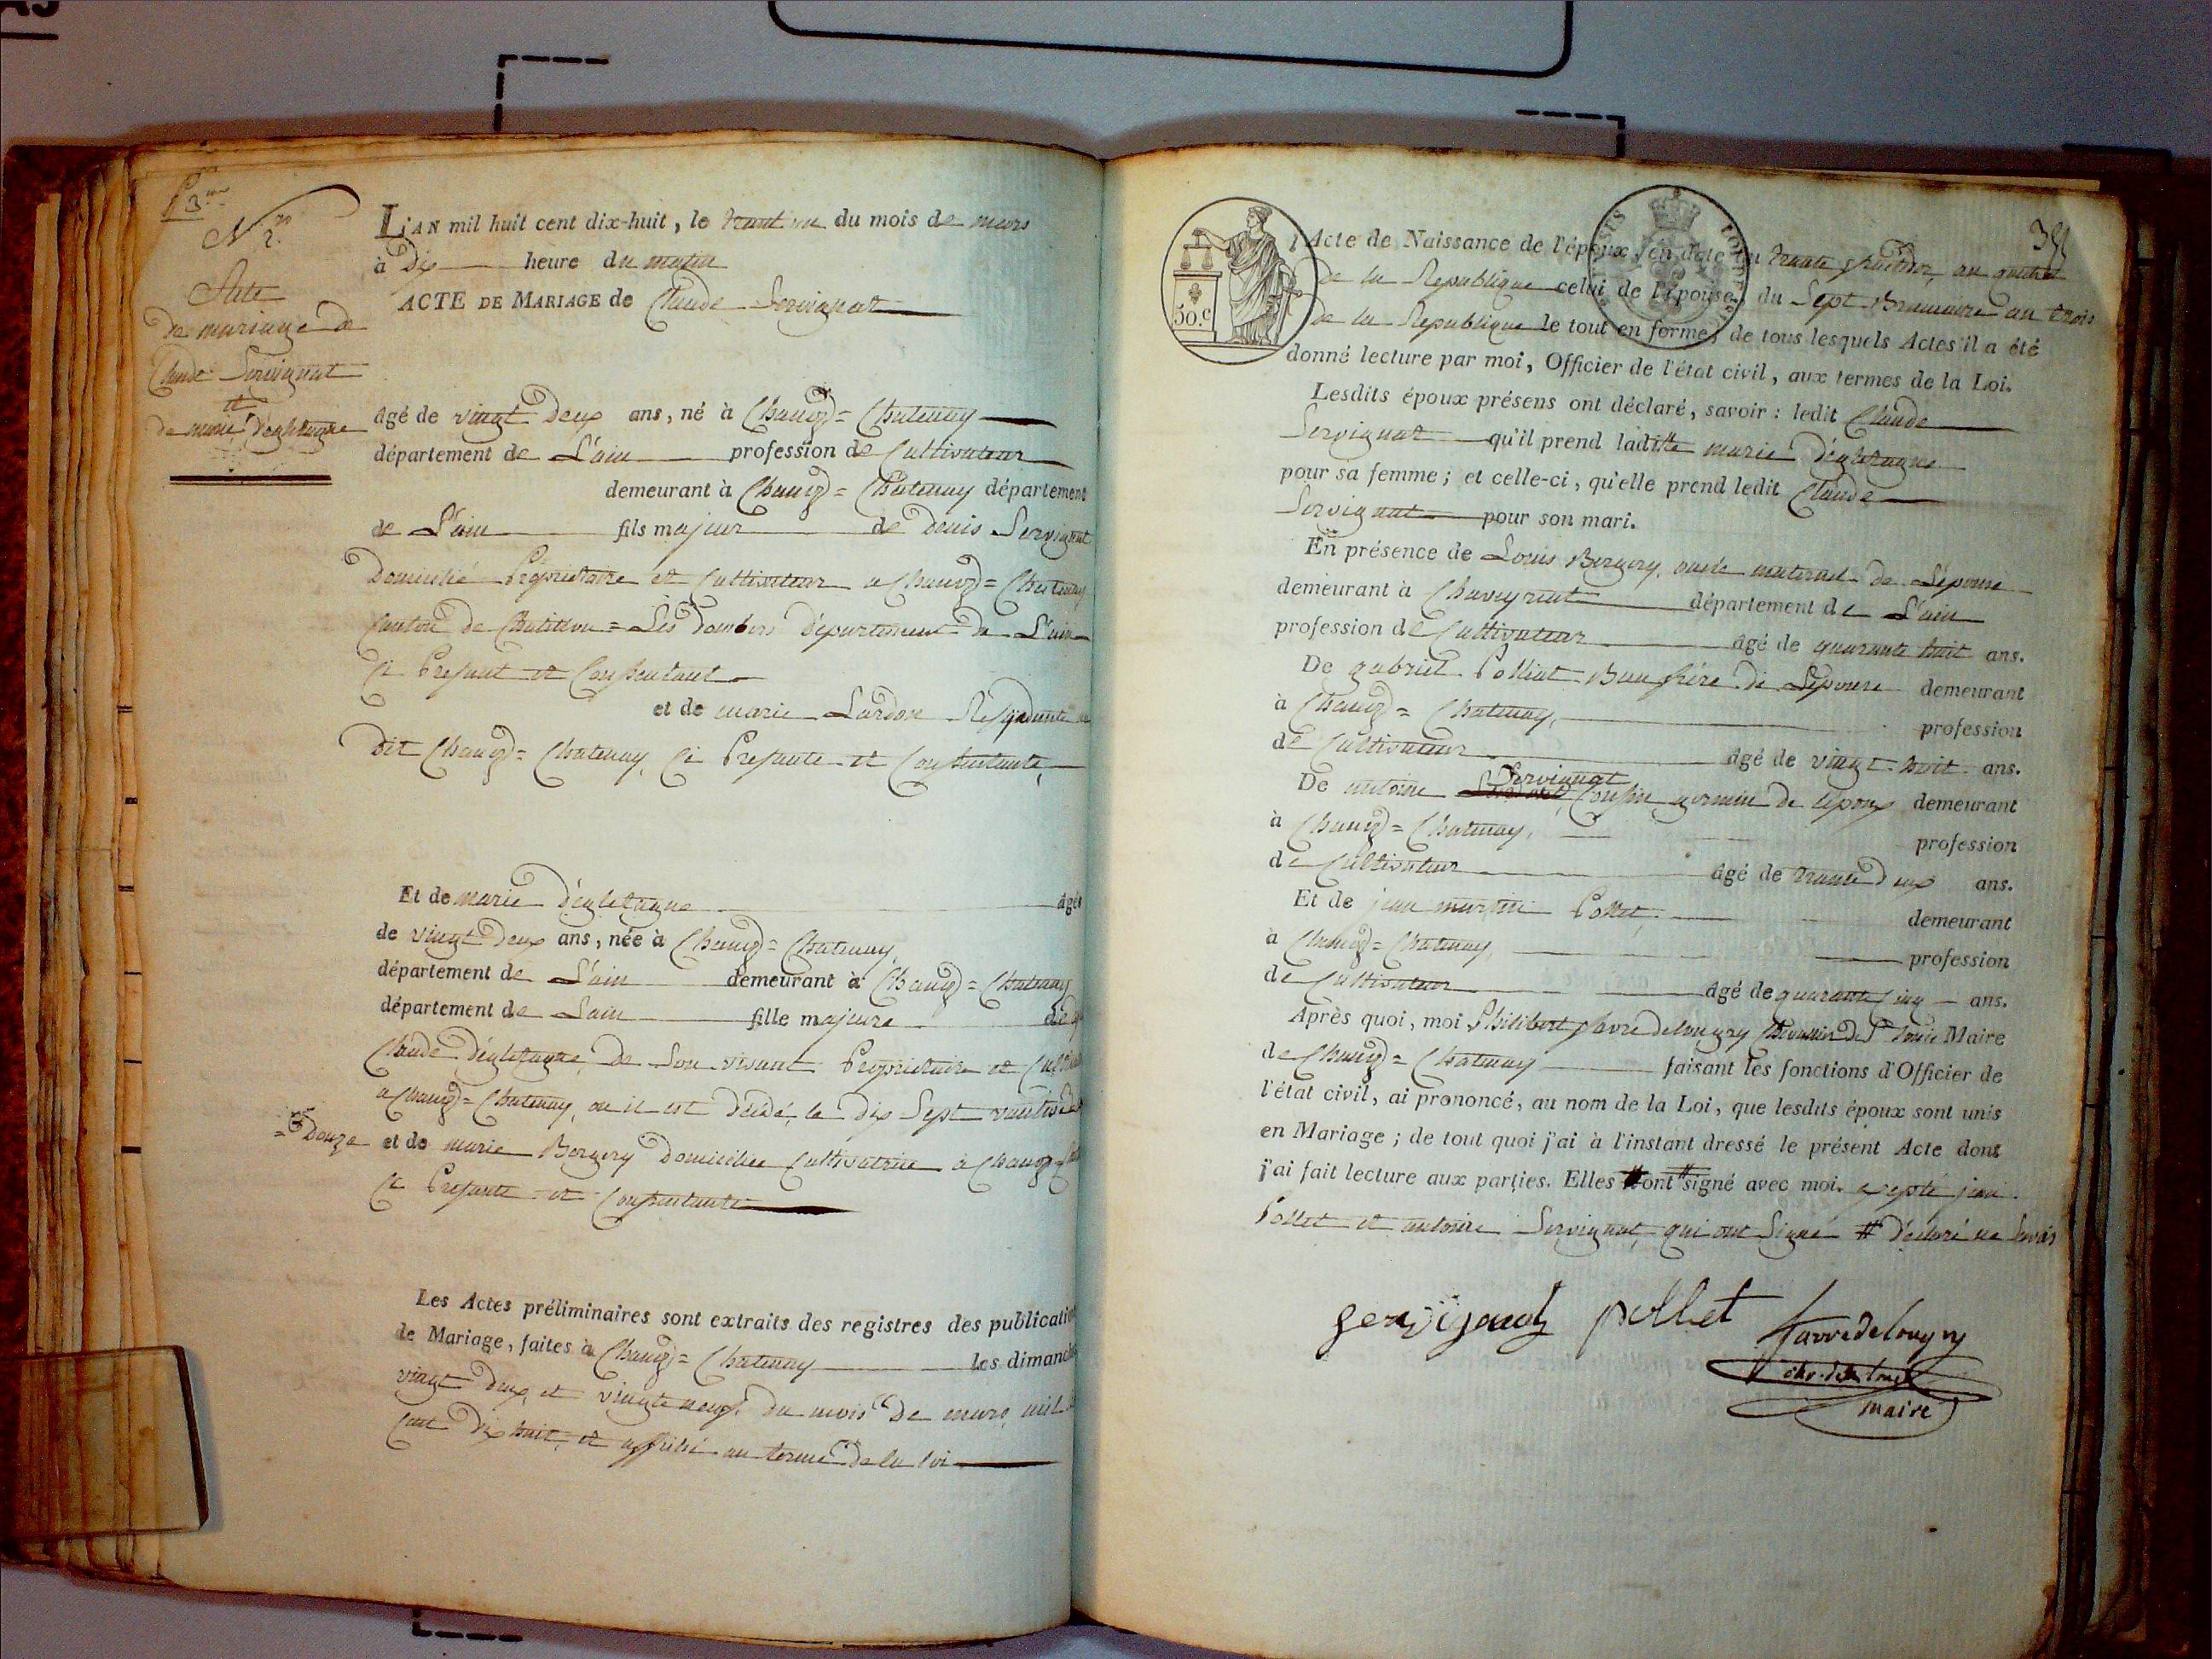 3me
N° 2.
Acte
de mariage de
Claude Servignat
et
de marie dégletagne
L'AN mil huit cent dix-huit, le trent un du mois de mars
à Dix heure du matin
ACTE DE MARIAGE de Claude Servignat
âgé de vingt Deux ans, né à Chanoz=Chatenay
département de L'ain profession de Cultivateur
demeurant à Chanoz=Chatenay département
de L'ain fils majeur de Denis Servignat
Domicilié Propriétaire et Cultivateur a Chanoz=Chatenay
Canton de Chatillon=Les Dombes Département de L'ain
Ci Présent et Consentant
et de marie Lardon
Dit Chanoz=Chatenay, Ci Présente et Consentante,
Et de marie Dégletagne âgée
de vingt Deux ans, née à Chanoz=Chatenay
département de L'ain demeurant à Chanoz=Chatenay
département de Lain fille majeure de
Claude dégletagne, de Son vivant Propriétaire et
a Chanoz=Chatenay, ou il est Décédé, le Dix Sept
=Douze et de marie Bergery Domiciliée Cultivatrice à Chanoz=
Ci Présente et Consentante
Les Actes préliminaires sont extraits des registres des publications
de Mariage, faites à Chanoz=Chatenay les dimanches
vingt deux, et vingt neuf du mois de mars, mil
Cent Dix huit, et affiché au terme de la loi
38
50.C
l'Acte de Naissance de l'époux, en date du trente fructidor, an quatre
de la République celui de l'épouse, du Sept Brumaire an trois
de la République le tout en forme; de tous lesquels Actes il a été
donné lecture par moi, Officier de l'état civil, aux termes de la Loi.
Lesdits époux présens ont déclaré, savoir : ledit Claude
Servignat qu'il prend ladite marie Déglétagne
pour sa femme; et celle-ci, qu'elle prend ledit Claude
Servignat pour son mari.
En présence de Louis Bergery, oncle maternel de L'épouse
demeurant à Chaveyriat département de L'ain
profession de Cultivateur âgé de quarante huit ans.
De gabriel Polliat Beau frére de Lépouse demeurant
à Chanoz=Chatenay, profession
de Cultivateur âgé de vingt huit ans.
De antoine Servignat Cousin germin de lépoux demeurant
à Chanoz=Chatenay, profession
de Cultivateur âgé de trante Deux ans.
Et de jean martin Pollet, demeurant
à Chanoz=Chatenay, profession
de Cultivateur âgé de quarante Cinq ans.
Après quoi, moi Philibert favre delongry Chevalier de St Louis Maire
de Chanoz=Chatenay faisant les fonctions d'Officier de
l'état civil, ai prononcé, au nom de la Loi, que lesdits époux sont unis
en Mariage; de tout quoi j'ai à l'instant dressé le présent Acte dont
j'ai fait lecture aux parties. Elles ont # signé avec moi. exepté jean
Pollet et antoine Servignat, qui ont Signé # Déclaré ne Savoir
Servignat pollet favredelongry
chr. de St Louis
maire